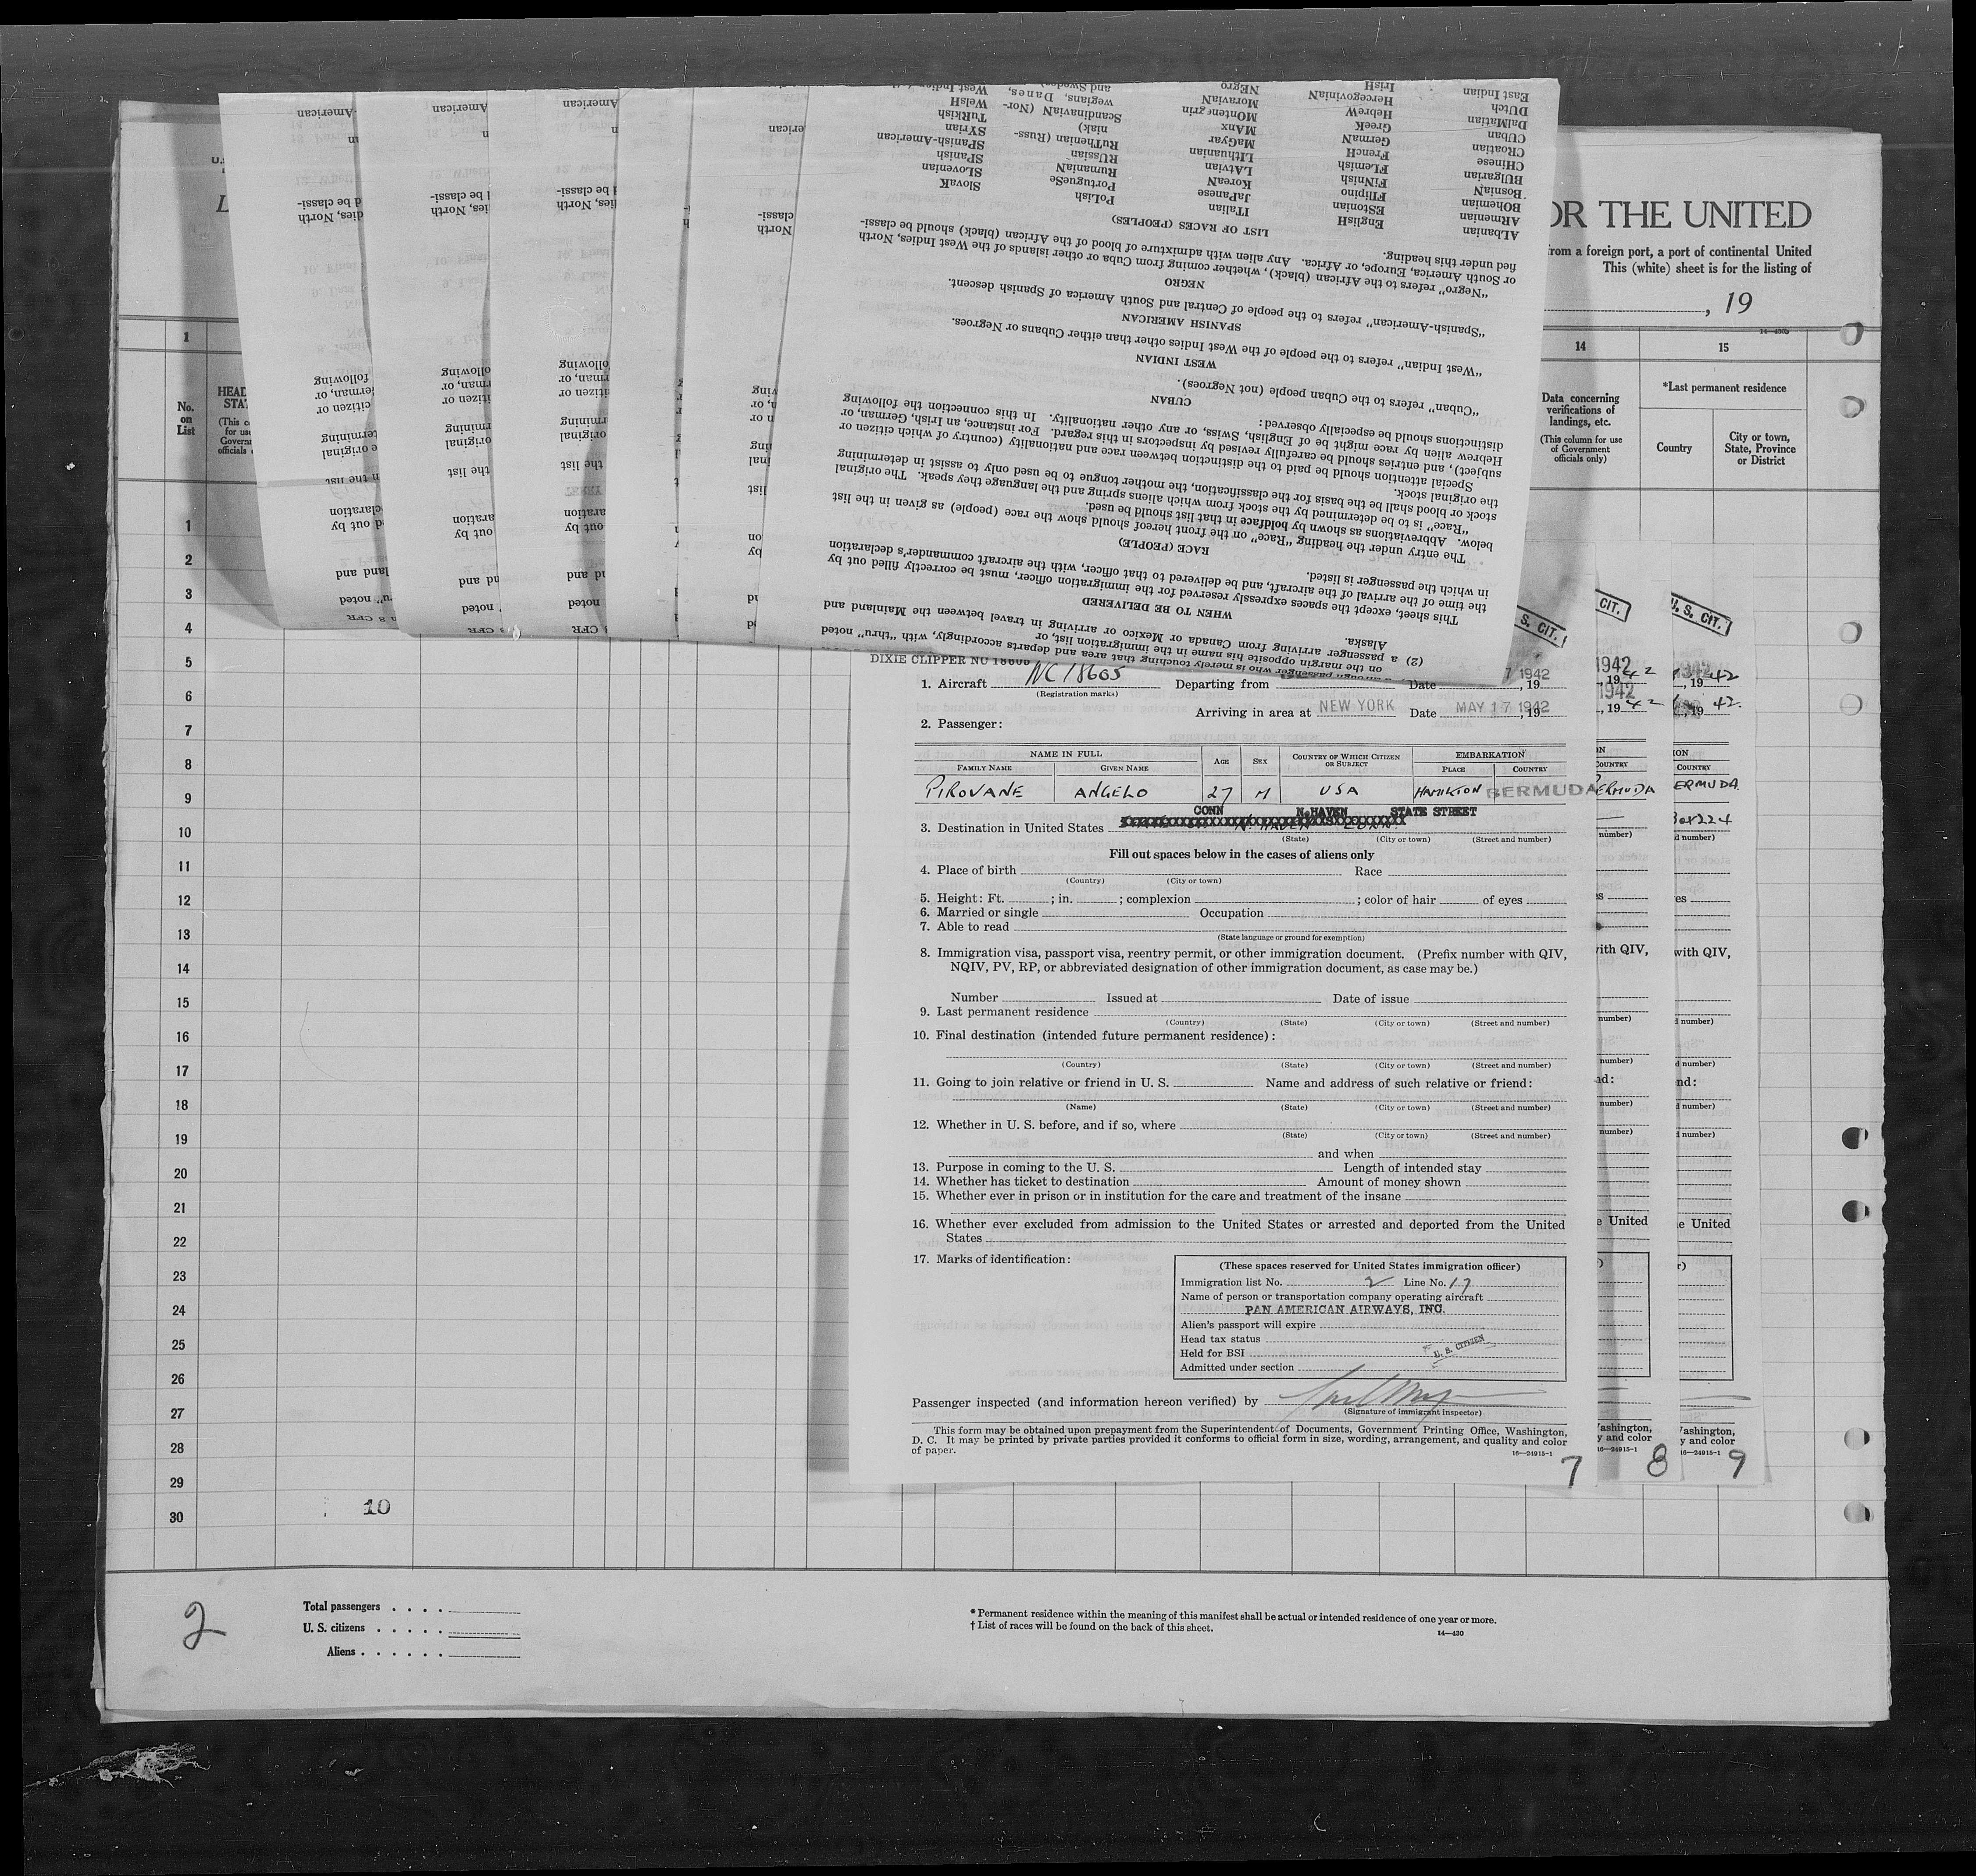 OR THE UNITED
rom a foreign port, a port of continental United
This (white) sheet is for the listing of
, 19
1
14
15
No.
on
List
HEAD
STAT
(This c
for us
Govern
officials
Data concerning
verifications of
landings, etc.
(This column for use
of Government
officials only)
*Last permanent residence
Country
City or town,
State, Province
or District
1
2
3
4
5
6
7
8
9
10
11
12
13
14
15
16
17
18
19
20
21
22
23
24
25
26
27
28
29
30
10
2
Total passengers
U. S. citizens
Aliens
* Permanent residence within the meaning of this manifest shall be actual or intended residence of one year or more.
† List of races will be found on the back of this sheet.
14—430
on the margin opposite his name in the immigration list, or
(2) a passenger arriving from Canada or Mexico or arriving in travel between the Mainland and
Alaska.
WHEN TO BE DELIVERED
This sheet, except the spaces expressly reserved for the immigration officer, must be correctly filled out by
the time of the arrival of the aircraft, and be delivered to that officer, with the aircraft commander's declaration
in which the passenger is listed.
RACE (PEOPLE)
The entry under the heading "Race" on the front hereof should show the race (people) as given in the list
below. Abbreviations as shown by boldface in that list should be used.
"Race" is to be determined by the stock from which aliens spring and the language they speak. The original
stock or blood shall be the basis for the classification, the mother tongue to be used only to assist in determining
the original stock.
Special attention should be paid to the distinction between race and nationality (country of which citizen or
subject), and entries should be carefully revised by inspectors in this regard. For instance, an Irish, German, or
Hebrew alien by race might be of English, Swiss, or any other nationality. In this connection the following
distinctions should be especially observed:
CUBAN
"Cuban" refers to the Cuban people (not Negroes).
WEST INDIAN
"West Indian" refers to the people of the West Indies other than either Cubans or Negroes.
SPANISH AMERICAN
"Spanish-American" refers to the people of Central and South America of Spanish descent.
NEGRO
"Negro" refers to the African (black), whether coming from Cuba or other islands of the West Indies, North
or South America, Europe, or Africa. Any alien with admixture of blood of the African (black) should be classi-
fied under this heading.
LIST OF RACES (PEOPLES)
ALbanian
ARmenian
BOhemian
BosniaN
BUlgarian
CHinese
CRoatian
CUban
DalMatian
DUtch
East Indian
EngliSH
EStonian
FIlipino
FiNnish
FLemish
FrencH
GermaN
GreeK
HebreW
HercegoviniaN
IrisH
ITalian
JaPanese
KoreaN
LAtvian
LIthuanian
MaGyar
MAnx
MOntenegrin
MoraviaN
NEgro
PoLish
PortugueSe
RumaniaN
RUssian
RuThenian (Russ-
niak)
ScandinaviaN (Nor-
wegians, Danes,
and Swedes)
SlovaK
SLovenian
SPanish
SPanish-American
SYrian
TuRkish
WelsH
West Indian
DIXIE CLIPPER NC 18606
1. Aircraft NC 18605 Departing from Date 7 1942, 19
(Registration marks)
Arriving in area at NEW YORK Date MAY 17 1942, 19
2. Passenger:
NAME IN FULL AGE SEX COUNTRY OF WHICH CITIZEN OR SUBJECT EMBARKATION
FAMILY NAME GIVEN NAME PLACE COUNTRY
PIROVANE ANGELO 27 M USA HAMILTON BERMUDA
CONN N.HAVEN STATE STREET
3. Destination in United States
(State) (City or town) (Street and number)
Fill out spaces below in the cases of aliens only
4. Place of birth Race
(Country) (City or town)
5. Height: Ft. ; in. ; complexion ; color of hair of eyes
6. Married or single Occupation
7. Able to read
(State language or ground for exemption)
8. Immigration visa, passport visa, reentry permit, or other immigration document. (Prefix number with QIV,
NQIV, PV, RP, or abbreviated designation of other immigration document, as case may be.)
Number Issued at Date of issue
9. Last permanent residence
(Country) (State) (City or town) (Street and number)
10. Final destination (intended future permanent residence):
(Country) (State) (City or town) (Street and number)
11. Going to join relative or friend in U. S. Name and address of such relative or friend:
(Name) (State) (City or town) (Street and number)
12. Whether in U. S. before, and if so, where
(State) (City or town) (Street and number)
and when
13. Purpose in coming to the U. S. Length of intended stay
14. Whether has ticket to destination Amount of money shown
15. Whether ever in prison or in institution for the care and treatment of the insane
16. Whether ever excluded from admission to the United States or arrested and deported from the United
States
17. Marks of identification:
(These spaces reserved for United States immigration officer)
Immigration list No. 2 Line No. 17
Name of person or transportation company operating aircraft
PAN AMERICAN AIRWAYS, INC.
Alien's passport will expire
Head tax status
Held for BSI
U. S. CITIZEN
Admitted under section
Passenger inspected (and information hereon verified) by
(Signature of immigrant inspector)
This form may be obtained upon prepayment from the Superintendent of Documents, Government Printing Office, Washington,
D. C. It may be printed by private parties provided it conforms to official form in size, wording, arrangement, and quality and color
of paper.
16—24915-1
7
8
9
S. CIT.
CIT.
U. S. CIT.